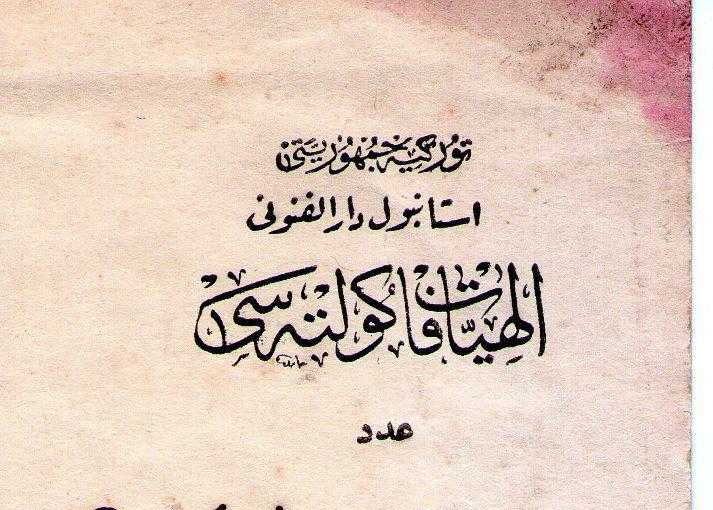 تورکیه جمهوریتی
استانبول دار الفنونی
الهیّات فاکولته سی
عدد